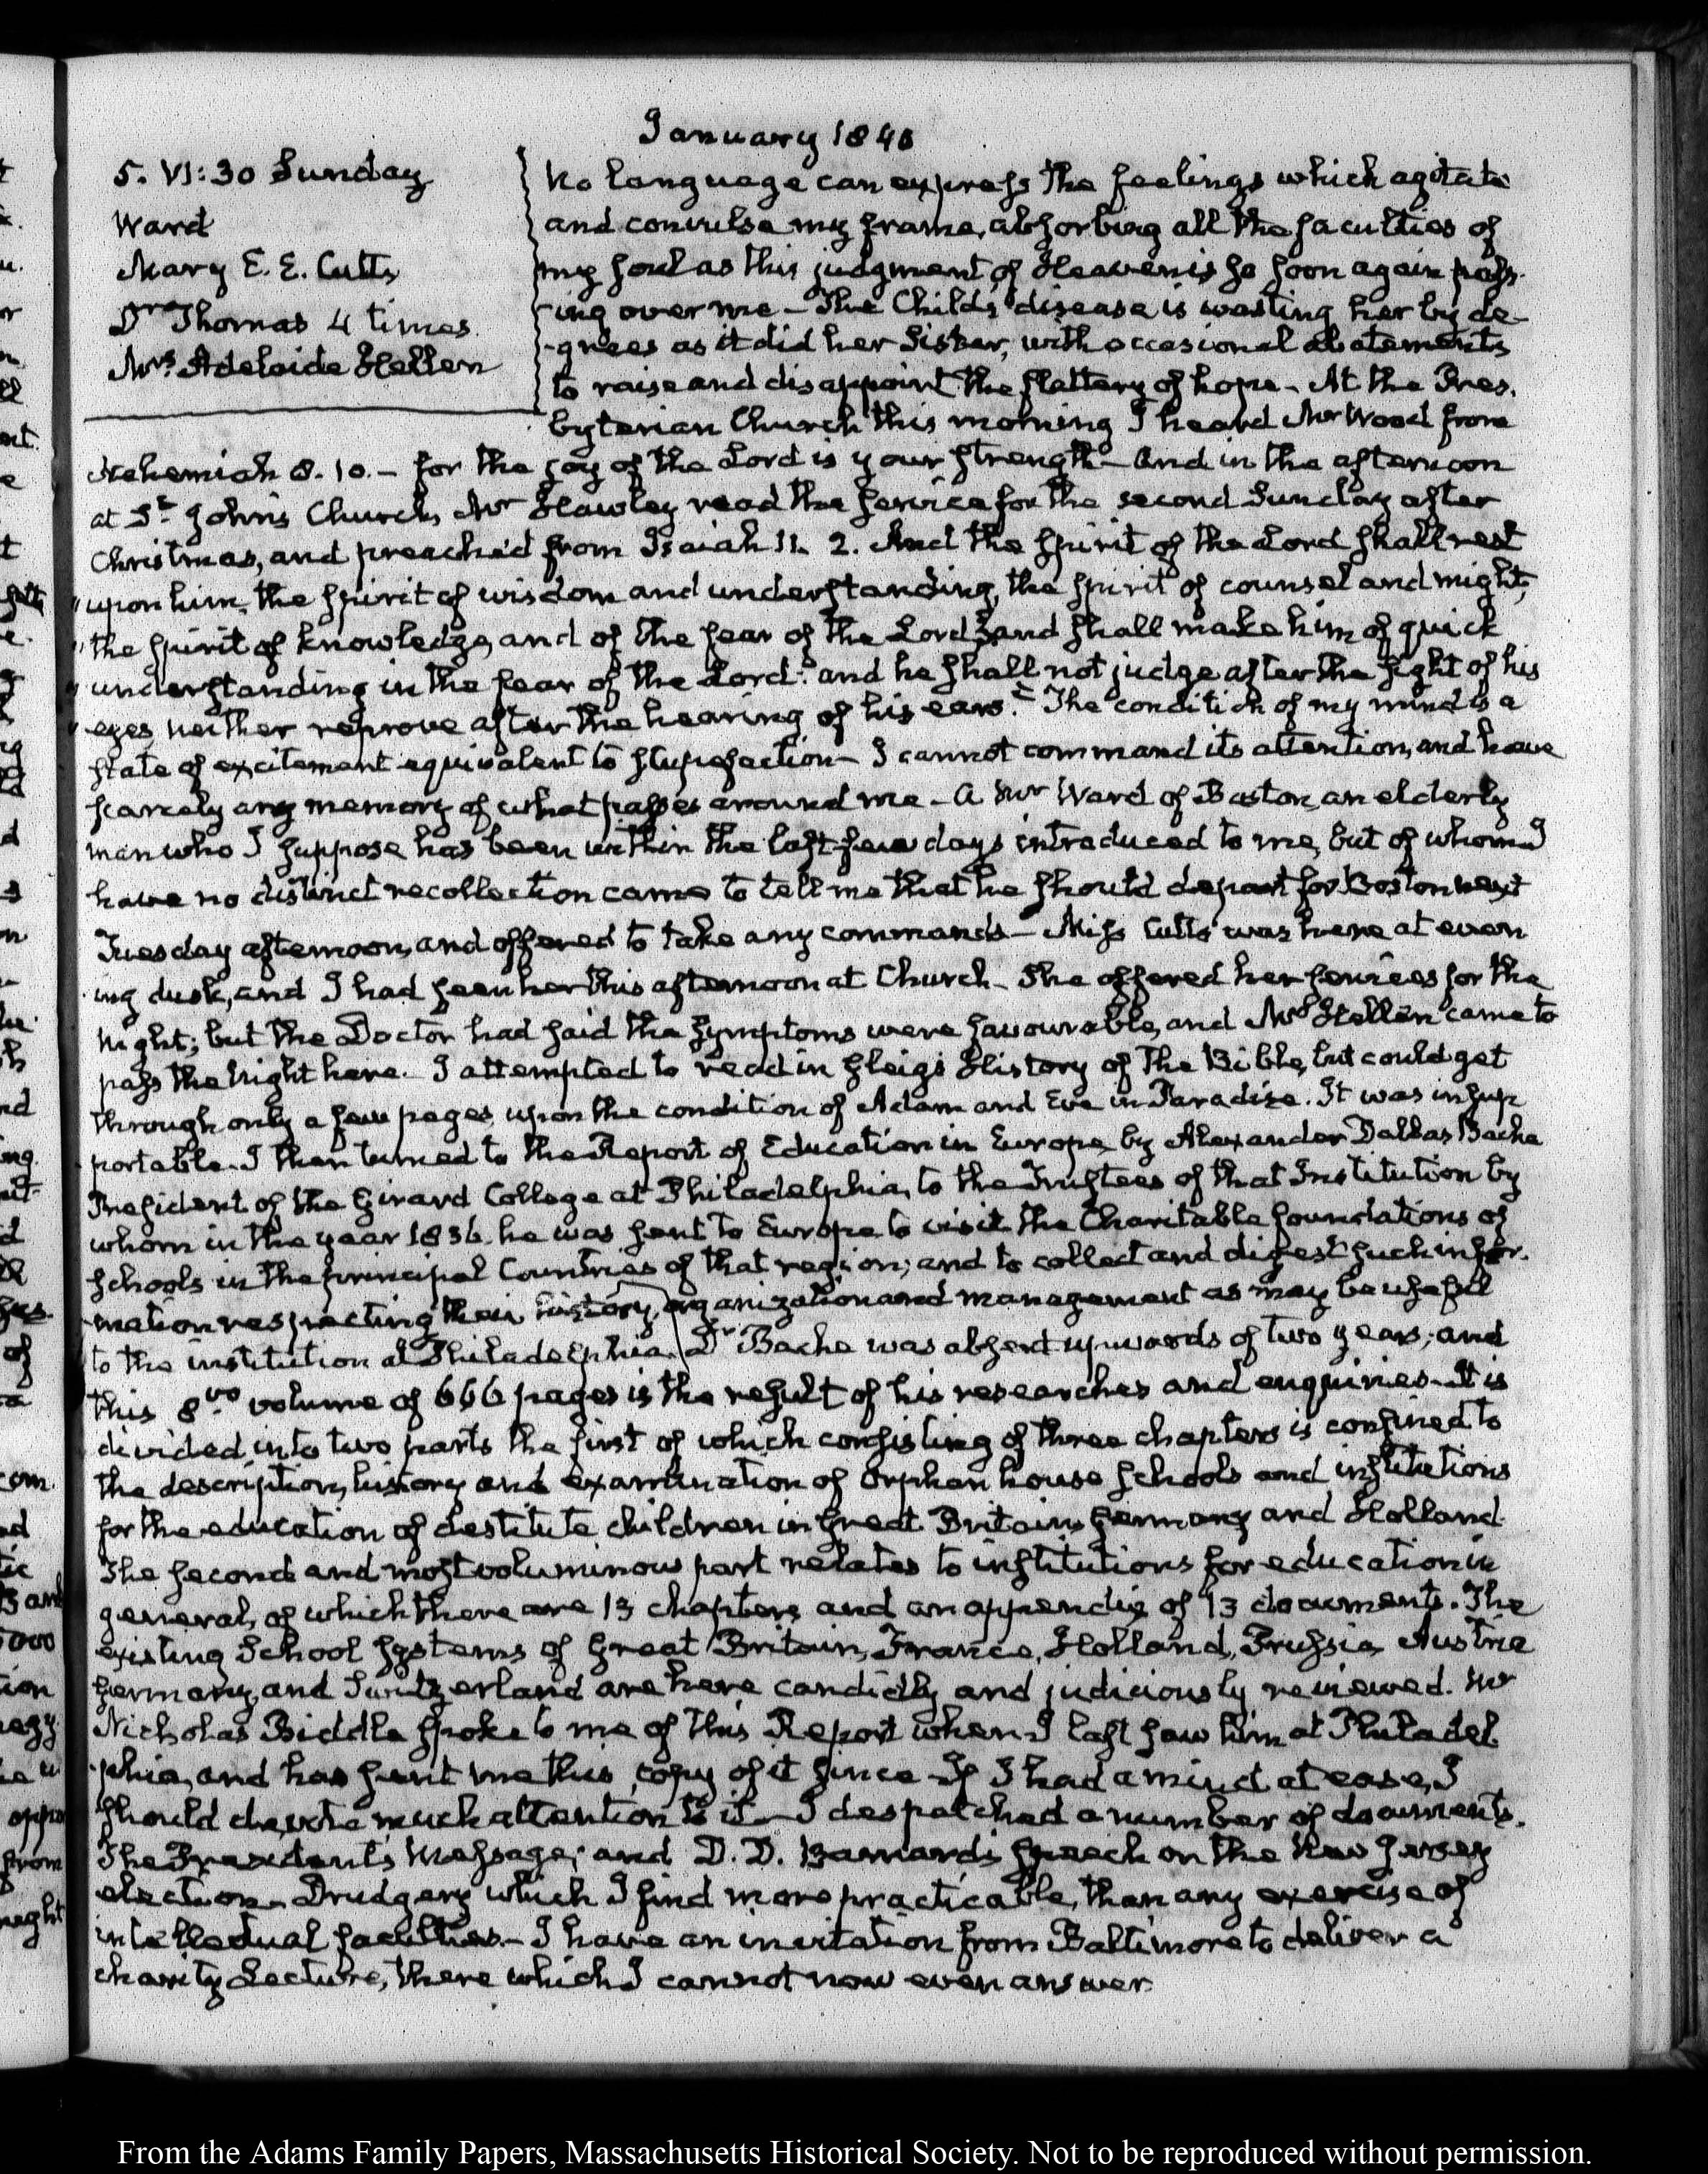 January 1840
5. VI:30 Sunday
Ward
Mary E. E. Cutts
Dr Thomas 4 times
Mrs Adelaide Hellen
No language can express the feelings which agitate
and convulse my frame, absorbing all the faculties of
my soul as this judgment of Heaven is so soon again pass-
ing over me – The Child's disease is wasting her by de-
-grees as it did her Sister, with occasional abatements
to raise and disappoint the flattery of hope – At the Pres.
byterian Church this morning I heard Mr Wood from
Nehemiah 8. 10. – for the joy of the Lord is your strength – And in the afternoon
at St John's Church, Mr Hawley read the service for the second Sunday after
Christmas, and preached from Isaiah 11. 2. And the spirit of the Lord shall rest
"upon him, the spirit of wisdom and understanding, the spirit of counsel and might,
"the spirit of knowledge, and of the fear of the Lord 3 and shall make him of quick
"understanding in the fear of the Lord: and he shall not judge after the sight of his
"eyes, neither reprove after the hearing of his ears." The condition of my mind is a
state of excitement equivalent to stupefaction – I cannot command its attention, and have
scarcely any memory of what passes around me – A Mr Ward of Boston, an elderly
man who I suppose has been within the last few days introduced to me, but of whom I
have no distinct recollection came to tell me that he should depart for Boston next
Tuesday afternoon, and offered to take any commands – Miss Cutts was here at even
ing dusk, and I had seen her this afternoon at Church – She offered her services for the
night; but the Doctor had said the symptoms were favourable, and Mrs Hellen came to
pass the night here. – I attempted to read in Gleig's History of the Bible, but could get
through only a few pages, upon the condition of Adam and Eve in Paradise. It was insup
portable. I then turned to the Report of Education in Europe, by Alexander Dallas Bache
President of the Girard College at Philadelphia, to the Trustees of that Institution by
whom in the year 1836. he was sent to Europe to visit the Charitable foundations of
Schools in the principal Countries of that region; and to collect and digest such infor.
mation respecting their history, organization and management as may be useful
to the institution at Philadelphia. Dr Bache was absent upwards of two years; and
this 8vo volume of 666 pages is the result of his researches and enquiries – It is
divided into two parts the first of which consisting of three chapters is confined to
the description, history and examination of Orphan house schools and institutions
for the education of destitute children in Great Britain, Germany and Holland.
The second and most voluminous part relates to institutions for education in
general, of which there are 13 chapters, and an appendix of 13 documents. The
existing School systems of Great Britain, France, Holland, Prussia, Austria
Germany, and Switzerland are here candidly and judiciously reviewed. Mr
Nicholas Biddle spoke to me of this Report when I last saw him at Philadel
phia, and has sent me this copy of it since – If I had a mind at ease, I
should devote much attention to it – I despatched a number of documents.
The President's Message; and D. D. Barnard's speech on the New Jersey
election – Drudgery which I find more practicable, than any exercise of
intellectual faculties. – I have an invitation from Baltimore to deliver a
charity Lecture, there which I cannot now even answer.
From the Adams Family Papers, Massachusetts Historical Society. Not to be reproduced without permission.